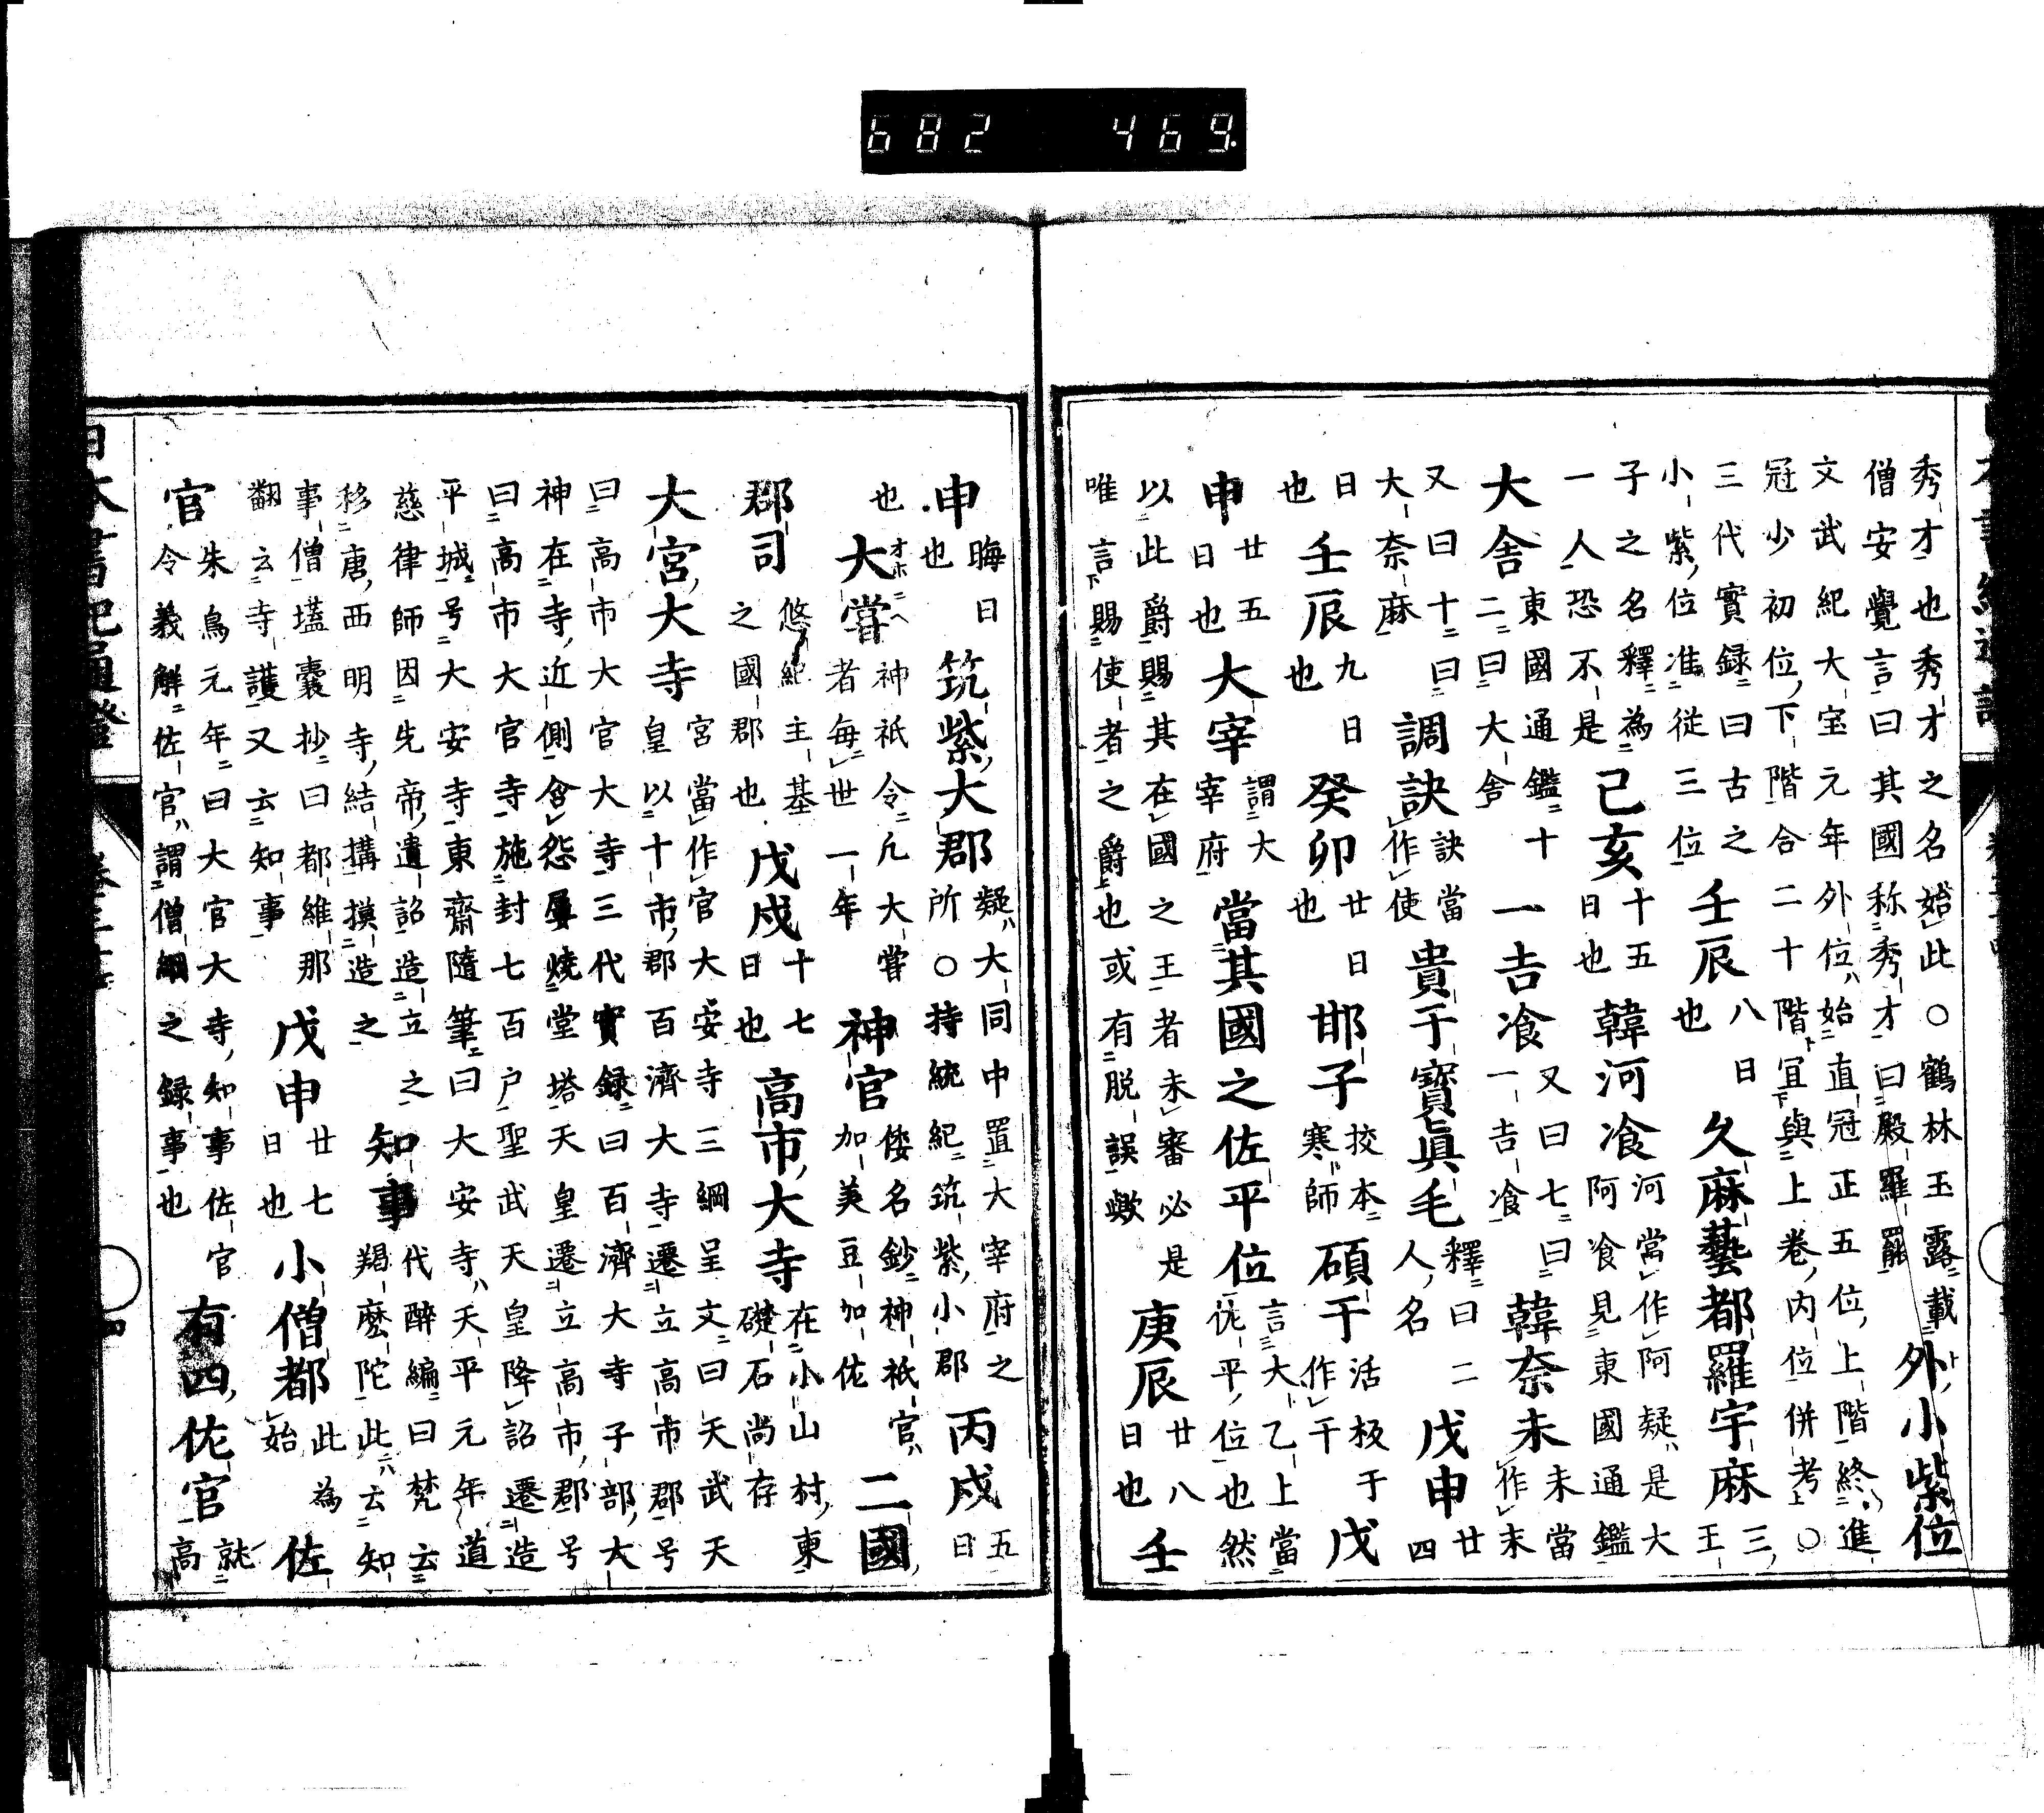 秀才也秀才之名始此○鶴林玉露載
僧安覺言曰其國称秀才曰殿羅罷
外小紫位
文武紀大宝元年外位始直冠正五位上階終進
冠少初位下階合二十階宜與上卷内位併考○
三代實録曰古之
小紫位准從三位
壬辰
八日
也
久麻藝都羅宇麻
三
王
子之名釋為
一人恐不是
己亥
十五
日也
韓河飡
河當作阿疑是大
阿飡見東國通鑑
大舎
東國通鑑十
二曰大舎
一吉飡
又曰七曰
一吉飡
韓奈未
未當
作末
又曰十曰
大奈麻
調訣
訣當
作使
貴干寳眞毛
釋曰二
人名
戊申
廿
四
日
也
壬辰
九日
也
癸卯
廿日
也
邯子
挍本
寒師
碩干
活板于
作干
戊
申
廿五
日也
大宰
謂大
宰府
當其國之佐平位
言大乙上當
佐平位也然
以此爵賜其在國之王者未審必是
唯言賜使者之爵也或有脱誤歟
庚辰
廿八
日也
壬
申
晦日
也
筑紫大郡
疑大同中置大宰府之
所○持統紀筑紫小郡
丙戌
五
日
也
大嘗
オホニヘ
神祇令凡大嘗
者毎世一年
神官
倭名鈔神祇官
加美豆加佐
二國
郡司
悠紀主基
之國郡也
戊戌
十七
日也
高市大寺
在小山村東
礎石尚存
大宮大寺
宮當作官大安寺三綱呈文曰天武天
皇以十市郡百濟大寺遷立高市郡号
曰高市大官大寺三代實録曰百濟大寺子部大
神在寺近側含怨屢焼堂塔天皇遷立高市郡号
曰高市大官寺施封七百户聖武天皇降詔遷造
平城号大安寺東齋隨筆曰大安寺天平元年道
慈律師因先帝遺詔造立之
移唐西明寺結搆摸造之
知事
代醉編曰梵云
羯磨陀此云知
事僧壒囊抄曰都維那
翻云寺護又云知事
戊申
廿七
日也
小僧都
此為
始
佐
官
朱鳥元年曰大官大寺知事佐官
令義解佐官謂僧綱之録事也
有四佐官
就
高
日本書紀通證
682 469.